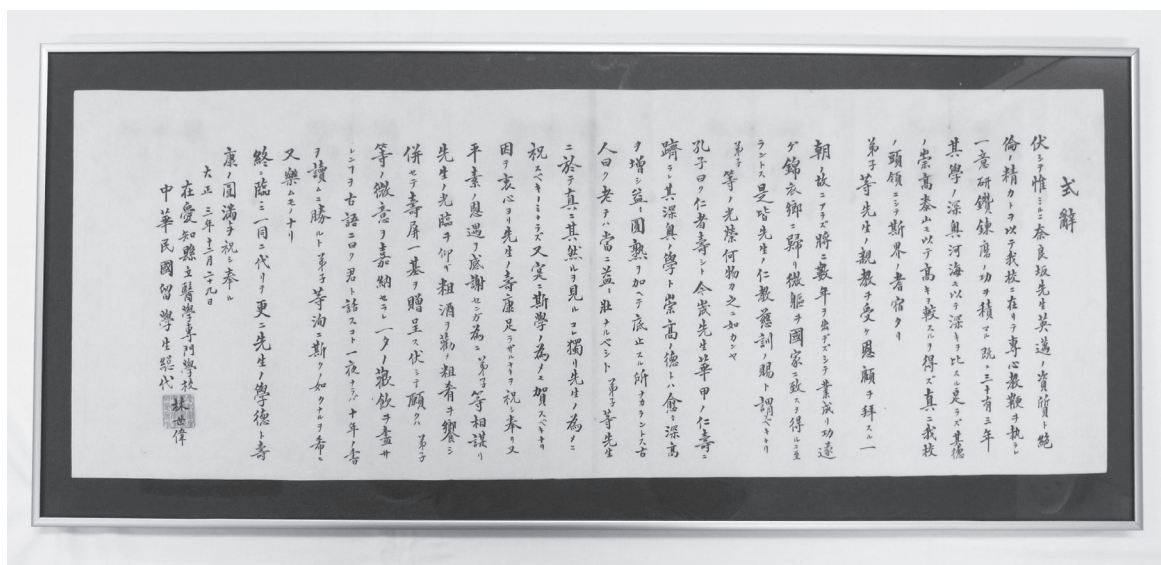 式辭
伏シテ惟ミルニ奈良坂先生英邁ノ資質ト絶
倫ノ精力トヲ以テ我校ニ在リテ專心教鞭ヲ執ラレ
一意研鑽錬磨ノ功ヲ積マル既ニ三十有三年
其學ノ深奥河海モ以テ深キヲ比スルニ足ラズ其德
ノ崇高泰山モ以テ高キヲ較スルヲ得ズ真ニ我校
ノ頭領ニシテ斯界ノ耆宿タリ
弟子等先生ノ親教ヲ受ケ恩顧ヲ拜スル一
朝ノ故ニアラズ將ニ數年ヲ出デズシテ業成リ功遂
ゲ錦衣鄉ニ歸リ微軀ヲ國家ニ致スヲ得ルニ至
ラントス是皆先生ノ仁教慈訓ノ賜ト謂ベキナリ
弟子等ノ光榮何物カ之ニ如カンヤ
孔子曰ク仁者壽シト今歲先生華甲ノ仁壽ニ
躋ラレ其深奥ノ學ト崇高ノ德トハ愈々深高
ヲ增シ益々圓熟ヲ加ヘテ底止スル所ナカラントス古
人曰ク老テハ當ニ益々壯ナルベシト弟子等先生
ニ於テ真ニ其然ルヲ見ルコレ獨リ先生ノ為メニ
祝スベキノミナラズ又実ニ斯學ノ為メニモ賀スベキナリ
因テ衷心ヨリ先生ノ壽康足ラザルナキヲ祝シ奉リ又
平素ノ恩遇ヲ感謝センガ為ニ弟子等相謀リ
先生ノ光臨ヲ仰ギ粗酒ヲ勸メ粗肴ヲ饗シ
併セテ壽屏一基ヲ贈呈ス伏シテ願クハ弟子
等ノ微意ヲ嘉納セラレ一夕ノ歡飲ヲ盡サ
レンコヲ古語ニ曰ク君ト話スコト一夜ナラバ十年ノ書
ヲ讀ムニ勝ルト弟子等洵ニ斯クノ如クナルヲ希ヒ
又樂ムモノナリ
終ニ臨ミ一同ニ代リテ更ニ先生ノ學德ト壽
康ノ圓滿ヲ祝シ奉ル
大正三年十二月二十九日
在愛知縣立醫學專門學校
中華民國留學生總代 林世偉